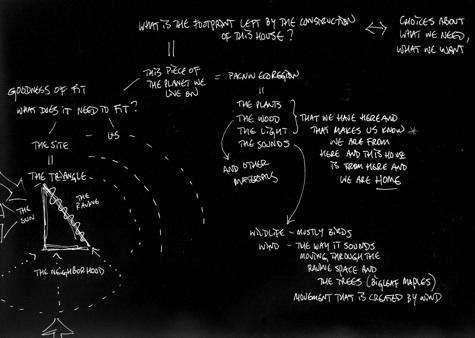 WHAT IS THE FOOTPRINT LEFT BY THE CONSTRUCTION
OF THIS HOUSE?
CHOICES ABOUT
WHAT WE NEED,
WHAT WE WANT
THIS PIECE OF
THE PLANET WE
LIVE ON
= PACNW ECOREGION
GOODNESS OF FIT
WHAT DOES IT NEED TO FIT?
US
THE SITE
THE TRIANGLE
THE RAVINE
THE SUN
THE NEIGHBORHOOD
THE PLANTS
THE WOOD
THE LIGHT
THE SOUNDS
AND OTHER
MATERIALS
THAT WE HAVE HERE AND
THAT MAKES US KNOW
WE ARE FROM
HERE AND THIS HOUSE
IS FROM HERE AND
WE ARE HOME
WILDLIFE - MOSTLY BIRDS
WIND - THE WAY IT SOUNDS
MOVING THROUGH THE
RAVINE SPACE AND
THE TREES (BIGLEAF MAPLES)
MOVEMENT THAT IS CREATED BY WIND